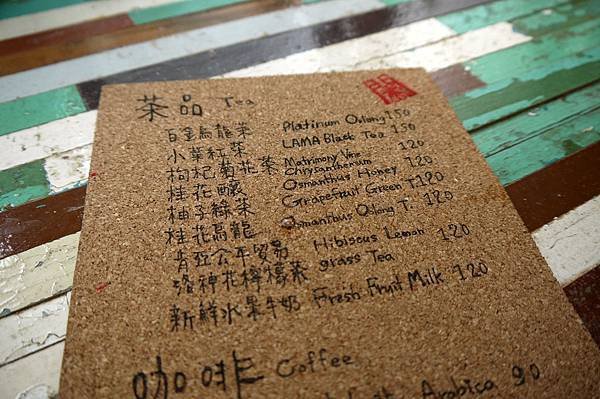 茶品 Tea
白金烏龍茶 Platinum Oolong 150
小葉紅茶 LAMA Black Tea 150
枸杞菊花茶 Matrimony Vine Chrysanthemum 120
桂花釀 Osmanthus Honey
柚子綠茶 Grapefruit Green T. 120
桂花烏龍 Osmanthus Oolong T. 120
肯亞公平貿易
洛神花檸檬茶 Hibiscus Lemon grass Tea 120
新鮮水果牛奶 Fresh Fruit Milk 120
咖啡 Coffee
Arabica 90